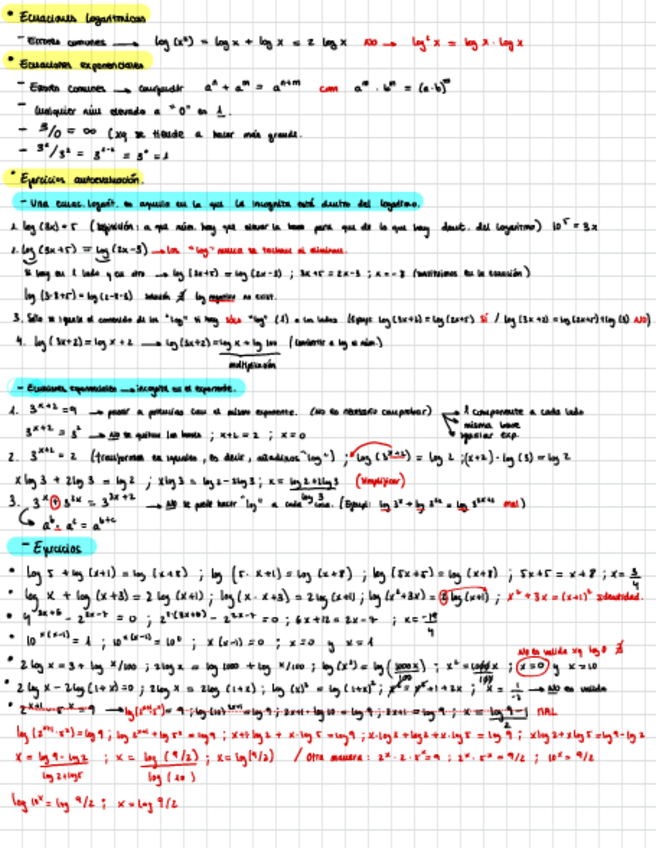 • Ecuaciones logarítmicas
- Errores comunes → log (x²) = log x + log x = 2 log x NO → log² x = log x · log x
• Ecuaciones exponenciales
- Errores comunes → confundir aⁿ + aᵐ = aⁿ⁺ᵐ con aᵐ · bᵐ = (a·b)ᵐ
- Cualquier núm elevado a "0" es 1.
- 3/0 = ∞ (xq se tiende a hacer más grande.
- 3²/3² = 3²⁻² = 3⁰ = 1
• Ejercicios autoevaluación.
- Una ecuac. logarít. es aquella en la que la incógnita está dentro del logaritmo.
1. log (3x) = 5 (definición: a que núm. hay que elevar la base para que de lo que hay dent. del logaritmo) 10⁵ = 3x
2. log (3x+5) = log (2x-3) → los "log" nunca se tachan ni eliminan.
si hay en 1 lado y en otro → log (3x+5) = log (2x-3) ; 3x+5 = 2x-3 ; x = -8 (sustituimos en la ecuación)
log (3·-8+5) = log (2·-8-3) solución ∄ log negativo no exist.
3. Solo se iguala el contenido de los "log" si hay sólo "log" (1) a los lados (Ejemp: log (3x+2) = log (2x+5) SÍ / log (3x+2) = log (2x+5) + log (3) NO)
4. log (3x+2) = log x + 2 → log (3x+2) = log x + log 100 (convertir a log el núm.)
multiplicación
- Ecuaciones exponenciales → incógnita en el exponente.
1. 3ˣ⁺² = 9 → pasar a potencias con el mismo exponente. (No es necesario comprobar) → 1 componente a cada lado
misma base
igualar exp.
3ˣ⁺² = 3² → No se quitan las bases ; x+2 = 2 ; x = 0
2. 3ˣ⁺² = 2 (trasformar en iguales, es decir, añadimos "log") ; log (3ˣ⁺²) = log 2 ; (x+2) · log (3) = log 2
x log 3 + 2 log 3 = log 2 ; x log 3 = log 2 - 2 log 3 ; x = log 2 + 2 log 3 / log 3 (Simplificar)
3. 3ˣ + 3²ˣ = 3³ˣ⁺² → No se puede hacer "log" a cada cosa. (Ejempl: log 3ˣ + log 3²ˣ = log 3³ˣ⁺² mal)
aᵇ · aᶜ = aᵇ⁺ᶜ
- Ejercicios
• log 5 + log (x+1) = log (x+8) ; log (5 · x+1) = log (x+8) ; log (5x+5) = log (x+8) ; 5x+5 = x+8 ; x = 3/4
• log x + log (x+3) = 2 log (x+1) ; log (x · x+3) = 2 log (x+1) ; log (x²+3x) = 2 log (x+1) ; x²+3x = (x+1)² identidad.
• 4³ˣ⁺⁶ - 2²ˣ⁻⁷ = 0 ; 2²·⁽³ˣ⁺⁶⁾ - 2²ˣ⁻⁷ = 0 ; 6x+12 = 2x-7 ; x = -19/4
• 10ˣ⁽ˣ⁻¹⁾ = 1 ; 10ˣ⁽ˣ⁻¹⁾ = 10⁰ ; x (x-1) = 0 ; x = 0 y x = 1
No es valida xq log 0 ∄
• 2 log x = 3 + log x/100 ; 2 log x = log 1000 + log x/100 ; log (x²) = log (1000x/100) ; x² = 1000x/100 ; x=0 y x = 10
• 2 log x - 2 log (1+x) = 0 ; 2 log x = 2 log (1+x) ; log (x)² = log (1+x)² ; x² = x² + 1 + 2x ; x = 1/-2 → No es valida
• 2ˣ⁺¹ · 5ˣ = 9 → log (2ˣ⁺¹·5ˣ) = 9 MAL
log (2ˣ⁺¹·5ˣ) = log 9 ; log 2ˣ⁺¹ + log 5ˣ = log 9 ; x+1·log 2 + x·log 5 = log 9 ; x·log 2 + log 2 + x·log 5 = log 9 ; x log 2 + x log 5 = log 9 - log 2
x = log 9 - log 2 / log 2 + log 5 ; x = log (9/2) / log (10) ; x = log (9/2) / Otra manera: 2ˣ · 2 · 5ˣ = 9 ; 2ˣ · 5ˣ = 9/2 ; 10ˣ = 9/2
log 10ˣ = log 9/2 ; x = log 9/2